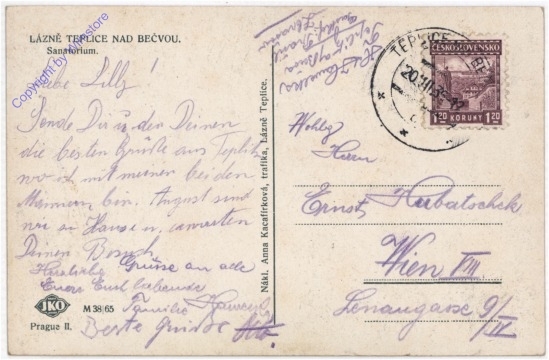 LÁZNĚ TEPLICE NAD BEČVOU.
Sanatorium.
Copyright by Ansstore
Liebe Lilly!
Sende Dir u. den Deinen
die besten Grüße aus Teplitz
wo ich mit meinen beiden
Mannern bin. August sind
wir zu Hause u. erwarten
Deinen Besuch
Herzliche Grüsse an alle
Eure Euch liebende
Familie
Beste Grüsse
JKO
M 38/65
Prague II.
Nákl. Anna Kacafírková, trafika, Lázně Teplice.
TEPLICE
ČESKOSLOVENSKO
1.20 KORUNY 1.20
Wohlg
Herrn
Ernst Kubatschek
Wien VIII
Lenaugasse 9/
IV